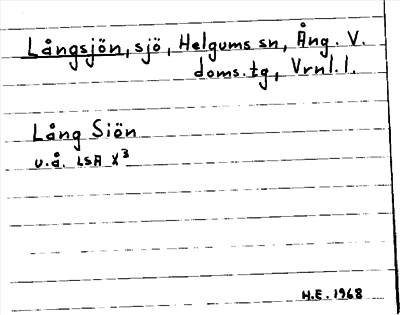 Långsjön, sjö, Helgums sn, Ång. V.
doms.tg, Vrnl.l.
Lång Siön
u.å. LSA X³
H.E. 1968